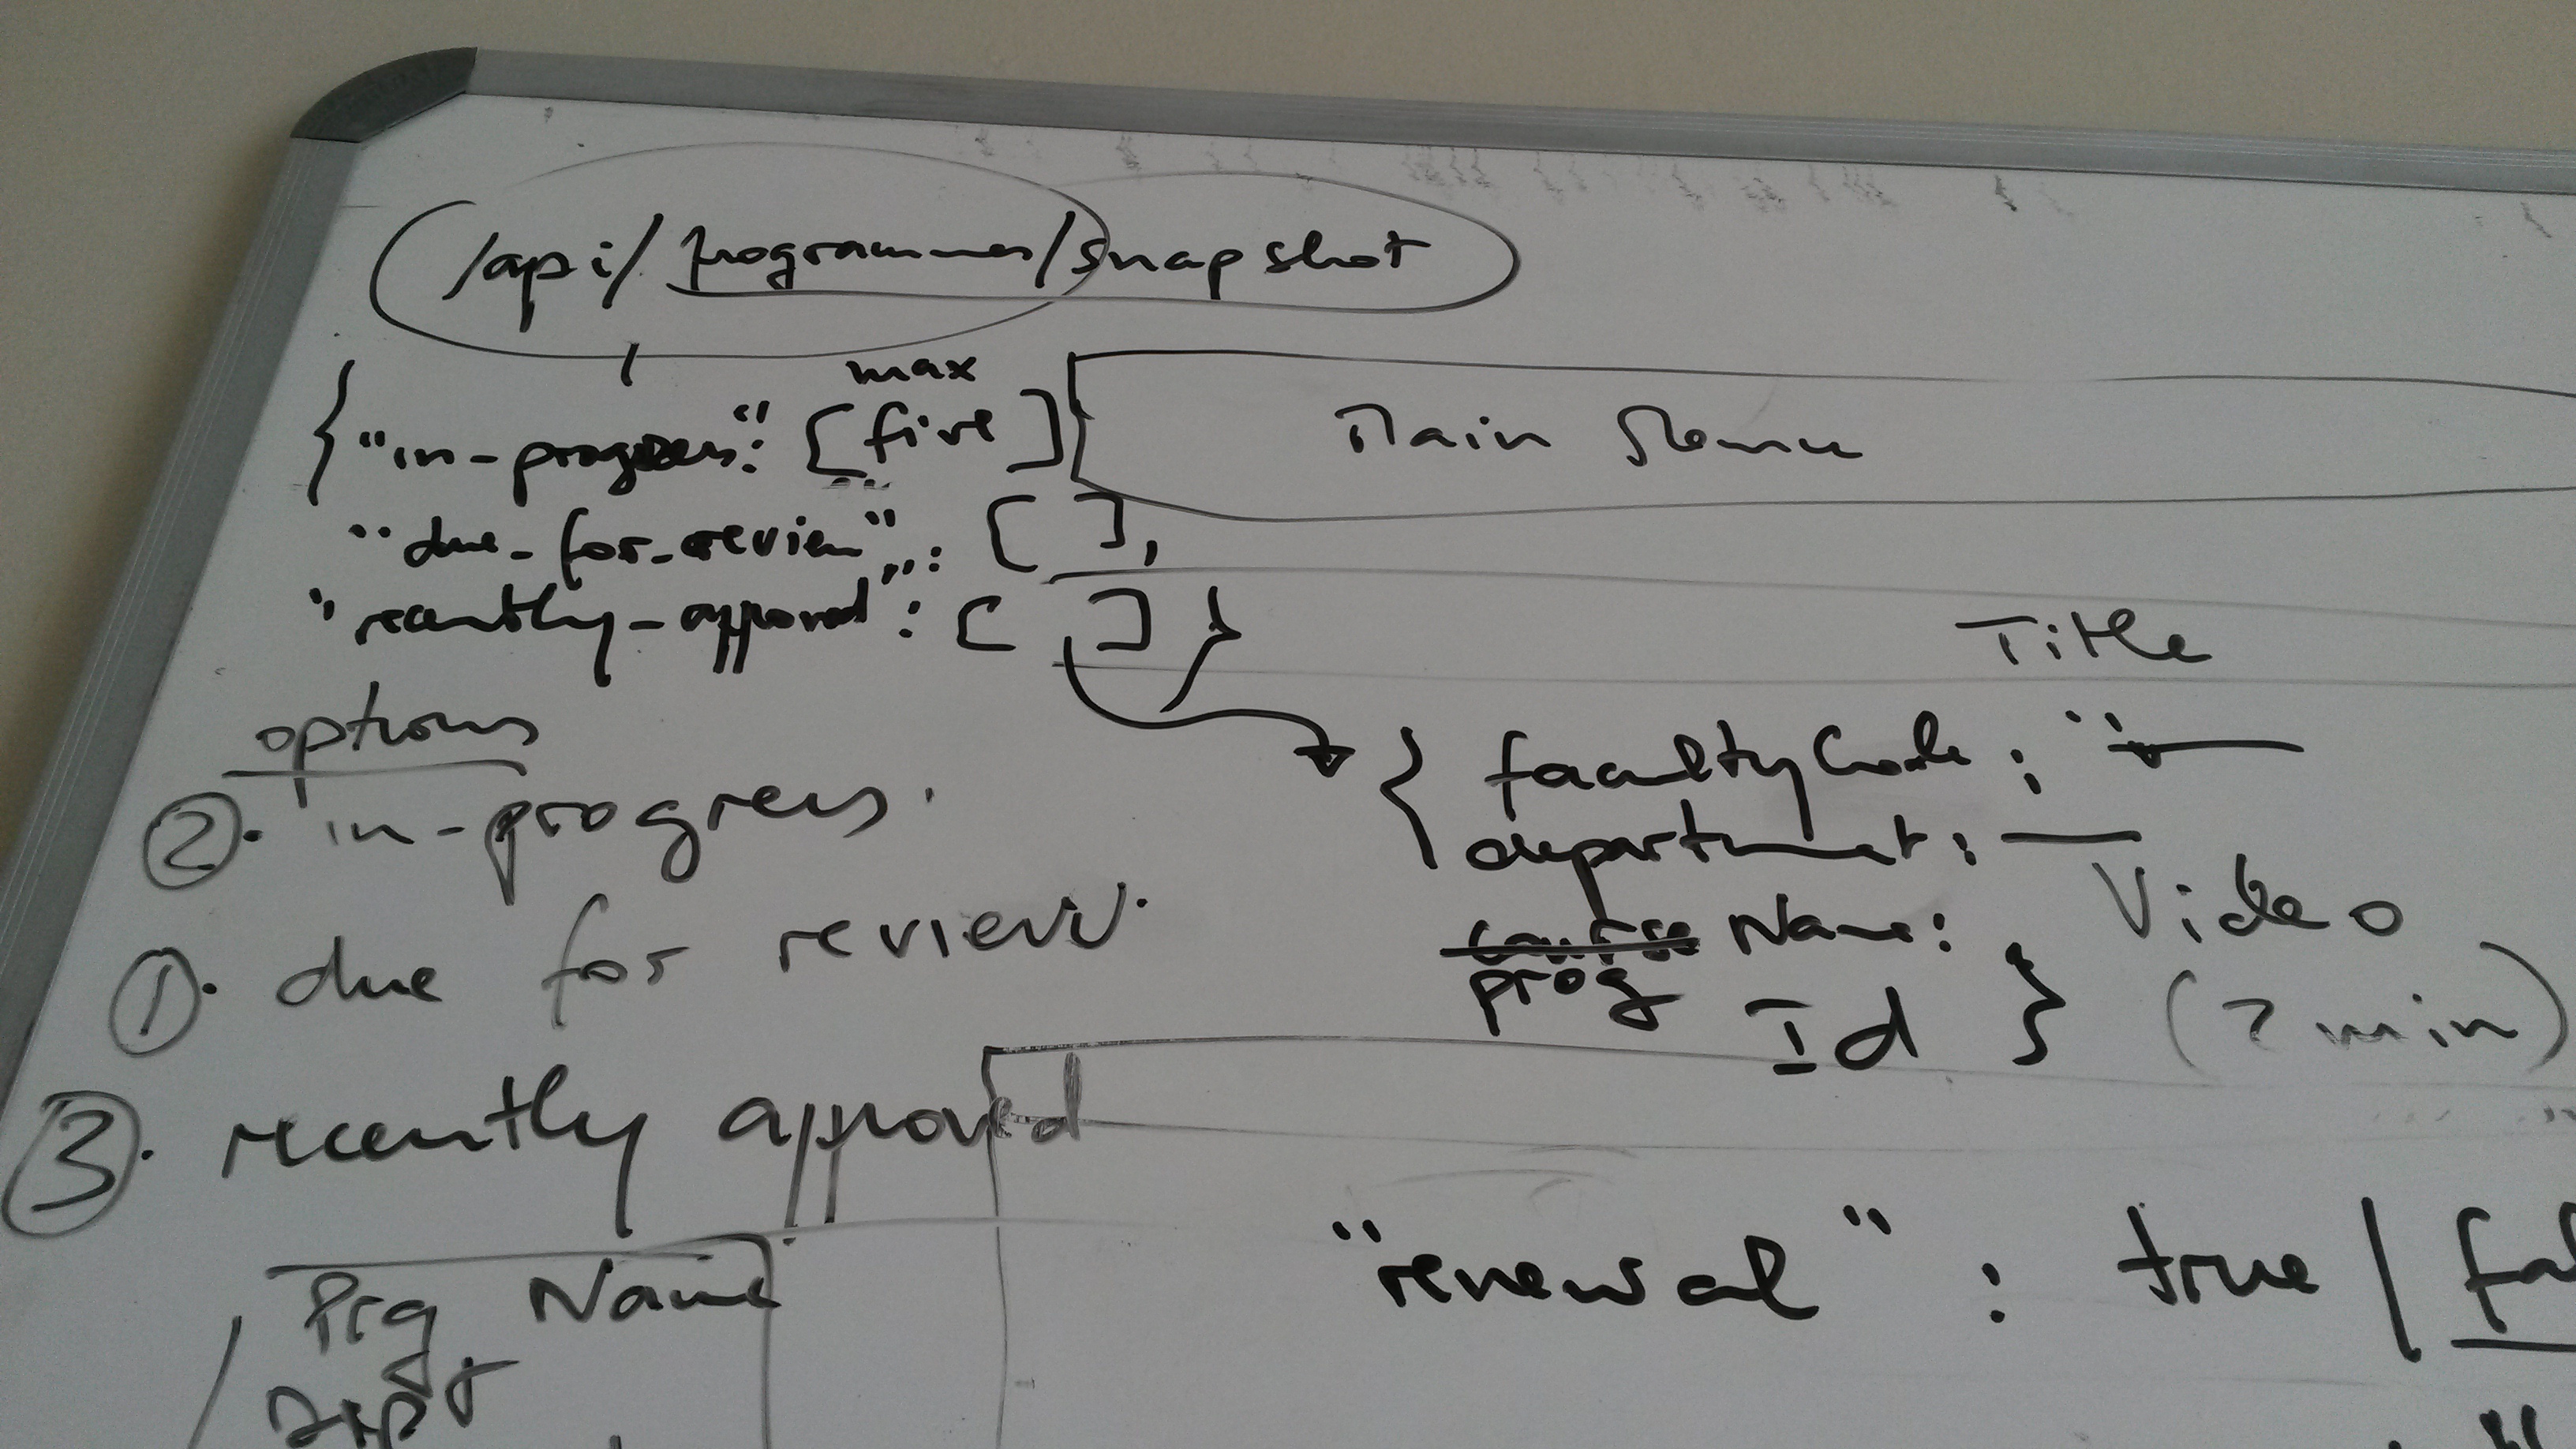 /api/programmes/snapshot
max
{ "in-progress": [five]
"due-for-review": [ ],
"recently-approved": [ ] }
Main
Title
options
② . in-progress.
① . due for review.
③ . recently approved
{ facultyCode : "
department :
course Name:
prog
Id }
Video
(2 min)
"renewal" : true | fal
Prg Name
Dept